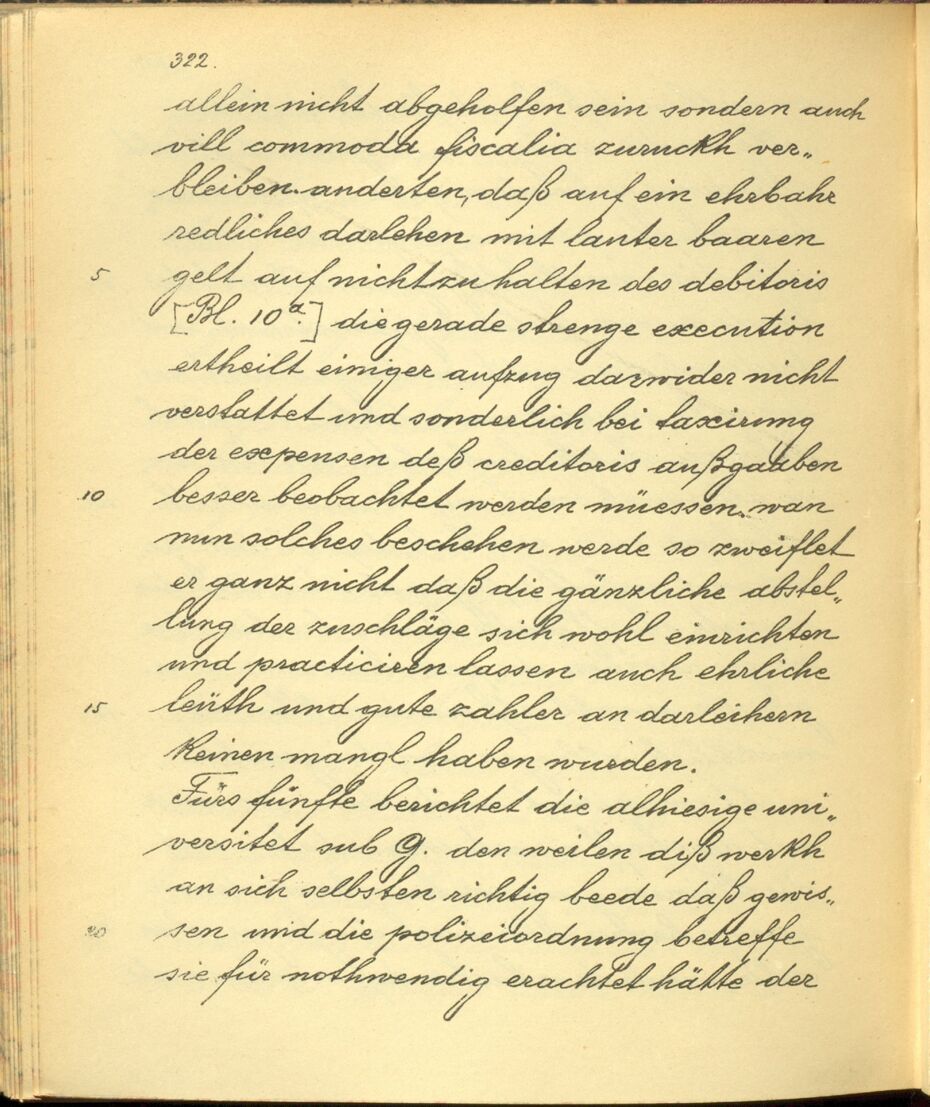 322.
allein nicht abgeholfen sein sondern auch
vill commoda fiscalia zuruckh ver„
bleiben. anderten, daß auf ein ehrbahr
redliches darlehen mit lauter baaren
5 gelt auf nicht zu halten des debitoris
[Bl. 10a.] die gerade strenge execution
ertheilt einiger aufzug darwider nicht
verstattet und sonderlich bei taxirung
der expensen deß creditoris außgaaben
10 besser beobachtet werden müessen. wan
nun solches beschehen werde so zweiflet
er ganz nicht daß die gänzliche abstel„
lung der zuschläge sich wohl einrichten
und practiciren lassen auch ehrliche
15 leüth und gute zahler an darleihern
keinen mangl haben wurden.
Fürs fünfte berichtet die alhiesige uni„
versitet sub G. den weilen diß werkh
an sich selbsten richtig beede daß gewis„
20 sen und die polizeiordnung betreffe
sie für nothwendig erachtet hätte der